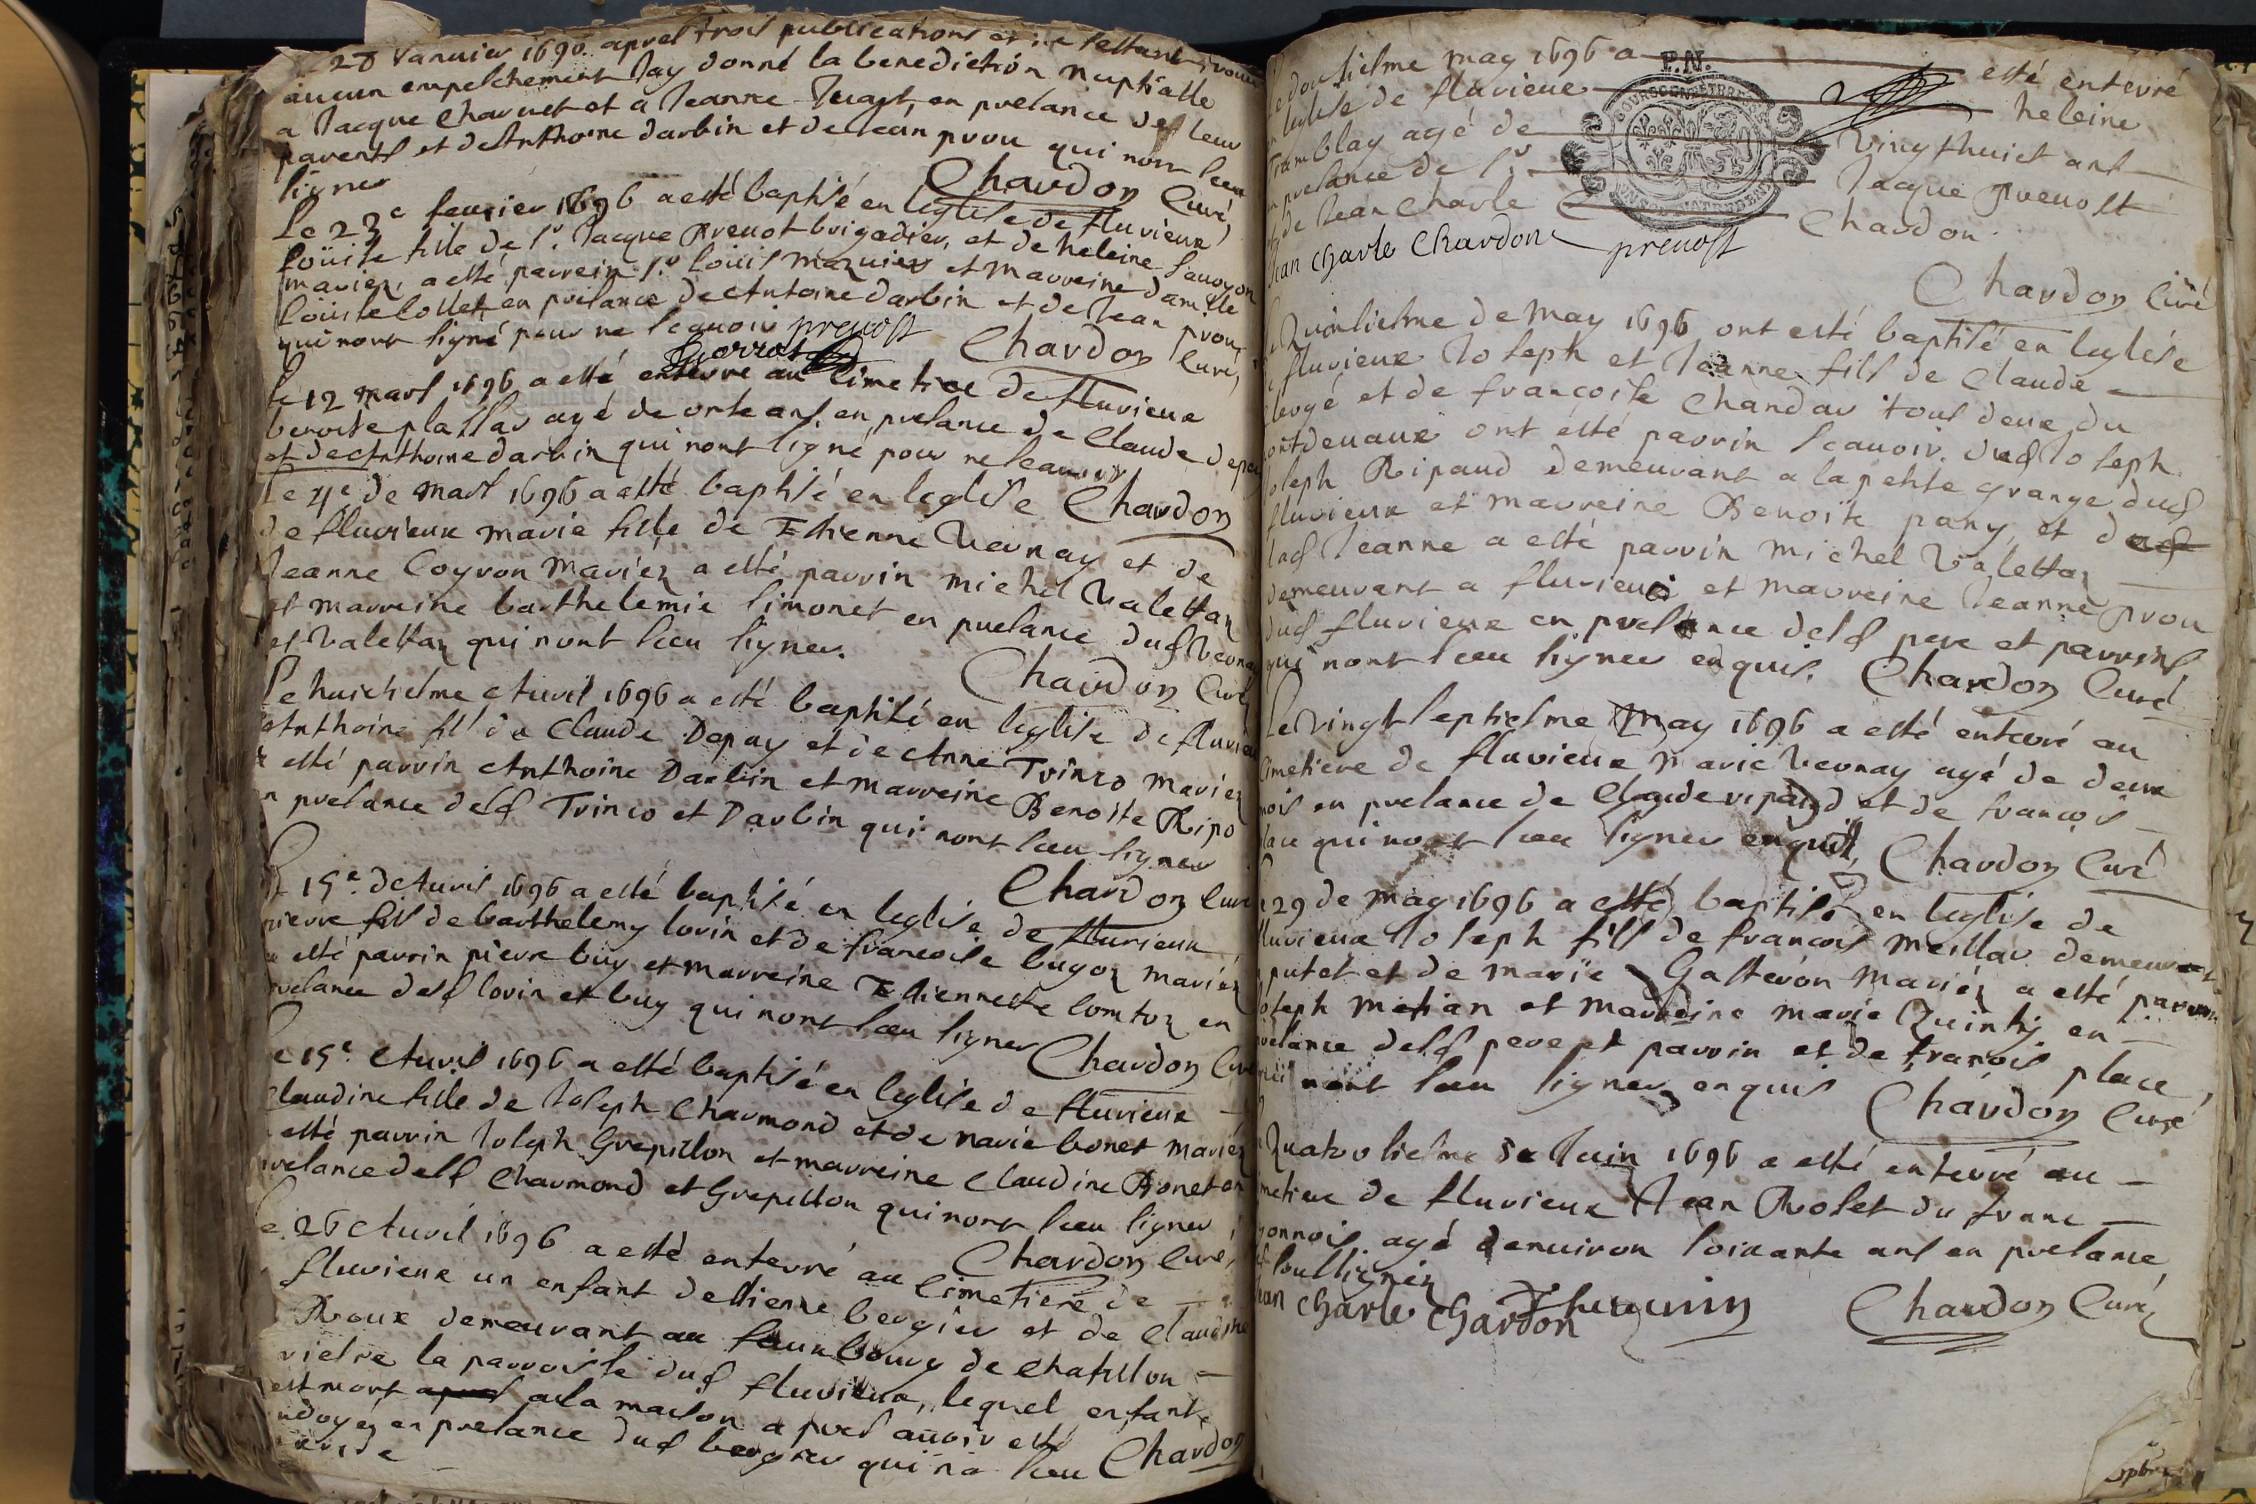 28 Januier 1696 apres trois publications et ne sestant trouué
aucun empeschement Jay donné la benediction nuptialle
a Jacque Charuet et a Jeanne en presance de leur
parents et de Anthoine darbin et de Jean prou qui nont sceu
signer
Chardon Curé
Le 23e feurier 1696 a esté baptisé en leglise de flurieux
Loüise fille de sr. Jacque Preuot brigadier, et de heleine sauoyon
mariez, a esté parrein sr Loüis maruier et marreine damlle
Loüise Collet en presance de Antoine darbin et de Jean prou
qui nont signé pour ne scauoir preuost
Chardon Curé
Le 12 mars 1696 a esté enterré au Cimetiere de flurieux
benoite plassar agé de onse ans en presance de Claude depay
et de Anthoine darbin qui nont signé pour ne scauoir
Chardon
Le 4e de mars 1696 a esté baptisé en leglise
de flurieux marie fille de Etienne Vernay et de
Jeanne Coyron mariéz a esté parrin michel Valettaz
et marreine barthelemie simonet en presance dud Vernay
et Valettaz qui nont sceu signer.
Chardon Curé
Le huictiesme Auril 1696 a esté baptisé en leglise de flurieux
Anthoine fils de Claude Depay et de Anne Trinco mariez
a esté parrin Anthoine Darbin et marreine Benoite Ripo
en presance desd Trinco et Darbin qui nont sceu signer
Chardon Curé
Le 15e. de Auril 1696 a esté baptisé en leglise de flurieux
pierre fils de barthelemy lorin et de francoise bugoz mariéz
a esté parrin pierre buy et marreine Etiennette Comtoz en
presance desd lorin et buy qui nont sceu signer
Chardon Curé
Le 15e. Auril 1696 a esté baptisé en leglise de flurieux
Claudine fille de Joseph Charmond et de marie bonet mariéz
a esté parrin Joseph Grepillon et marreine Claudine Bonet en
presance desd Charmond et Grepillon qui nont sceu signer
Chardon Curé
Le 26 Auril 1696 a esté enterré au Cimetiere de
flurieux un enfant destienne bergier et de Claudine
Roux demeurant au fauxbourg de Chatillon
la parroisse dud flurieux, lequel enfant
est mort a la maison apres auoir esté
ondoyéz en presance dud bergier qui na sceu
Chardon
Le dousiesme may 1696 a esté enterré
en leglise de flurieux heleine
Tramblay agé de vingthuict ans
en presance de sr. Jacque Preuost
et de Jean Charle Chardon.
Jean Charle Chardon preuost
Chardon Curé
P.N.
Le Quinsiesme de may 1696 ont esté baptisé en leglise
de flurieux Joseph et Jeanne fils de Claude
et de francoise Chandar tous deux du
pontdeuaux ont esté parrin scauoir dud Joseph
Joseph Ripaud demeurant a la petite grange dud
flurieux et marreine Benoite pany, et de
lad Jeanne a esté parrin michel Valettaz
demeurant a flurieux et marreine Jeanne prou
dud flurieux en presance desd pere et parrins
qui nont sceu signer enquis. Chardon Curé
Le vingt septiesme may 1696 a esté enterré au
Cimetiere de flurieux marie Vernay agé de deux
mois en presance de Claude ripaud et de francois
place qui nont sceu signer enquis, Chardon Curé
Le 29 de may 1696 a esté baptisé en leglise de
flurieux Joseph fils de francois meillar demeurant
putet et de marie Gasteron mariéz a esté parrin
Joseph metian et marreine marie Quinty en
presance desd pere et parrin et de francois place,
qui nont sceu signer enquis Chardon Curé
Le Quatorsiesme de Juin 1696 a esté enterré au
Cimetiere de flurieux Jean Rolet du franc
lyonnois agé denuiron soixante ans en presance
soussignéz
Jean Charle Chardon
Chardon Curé